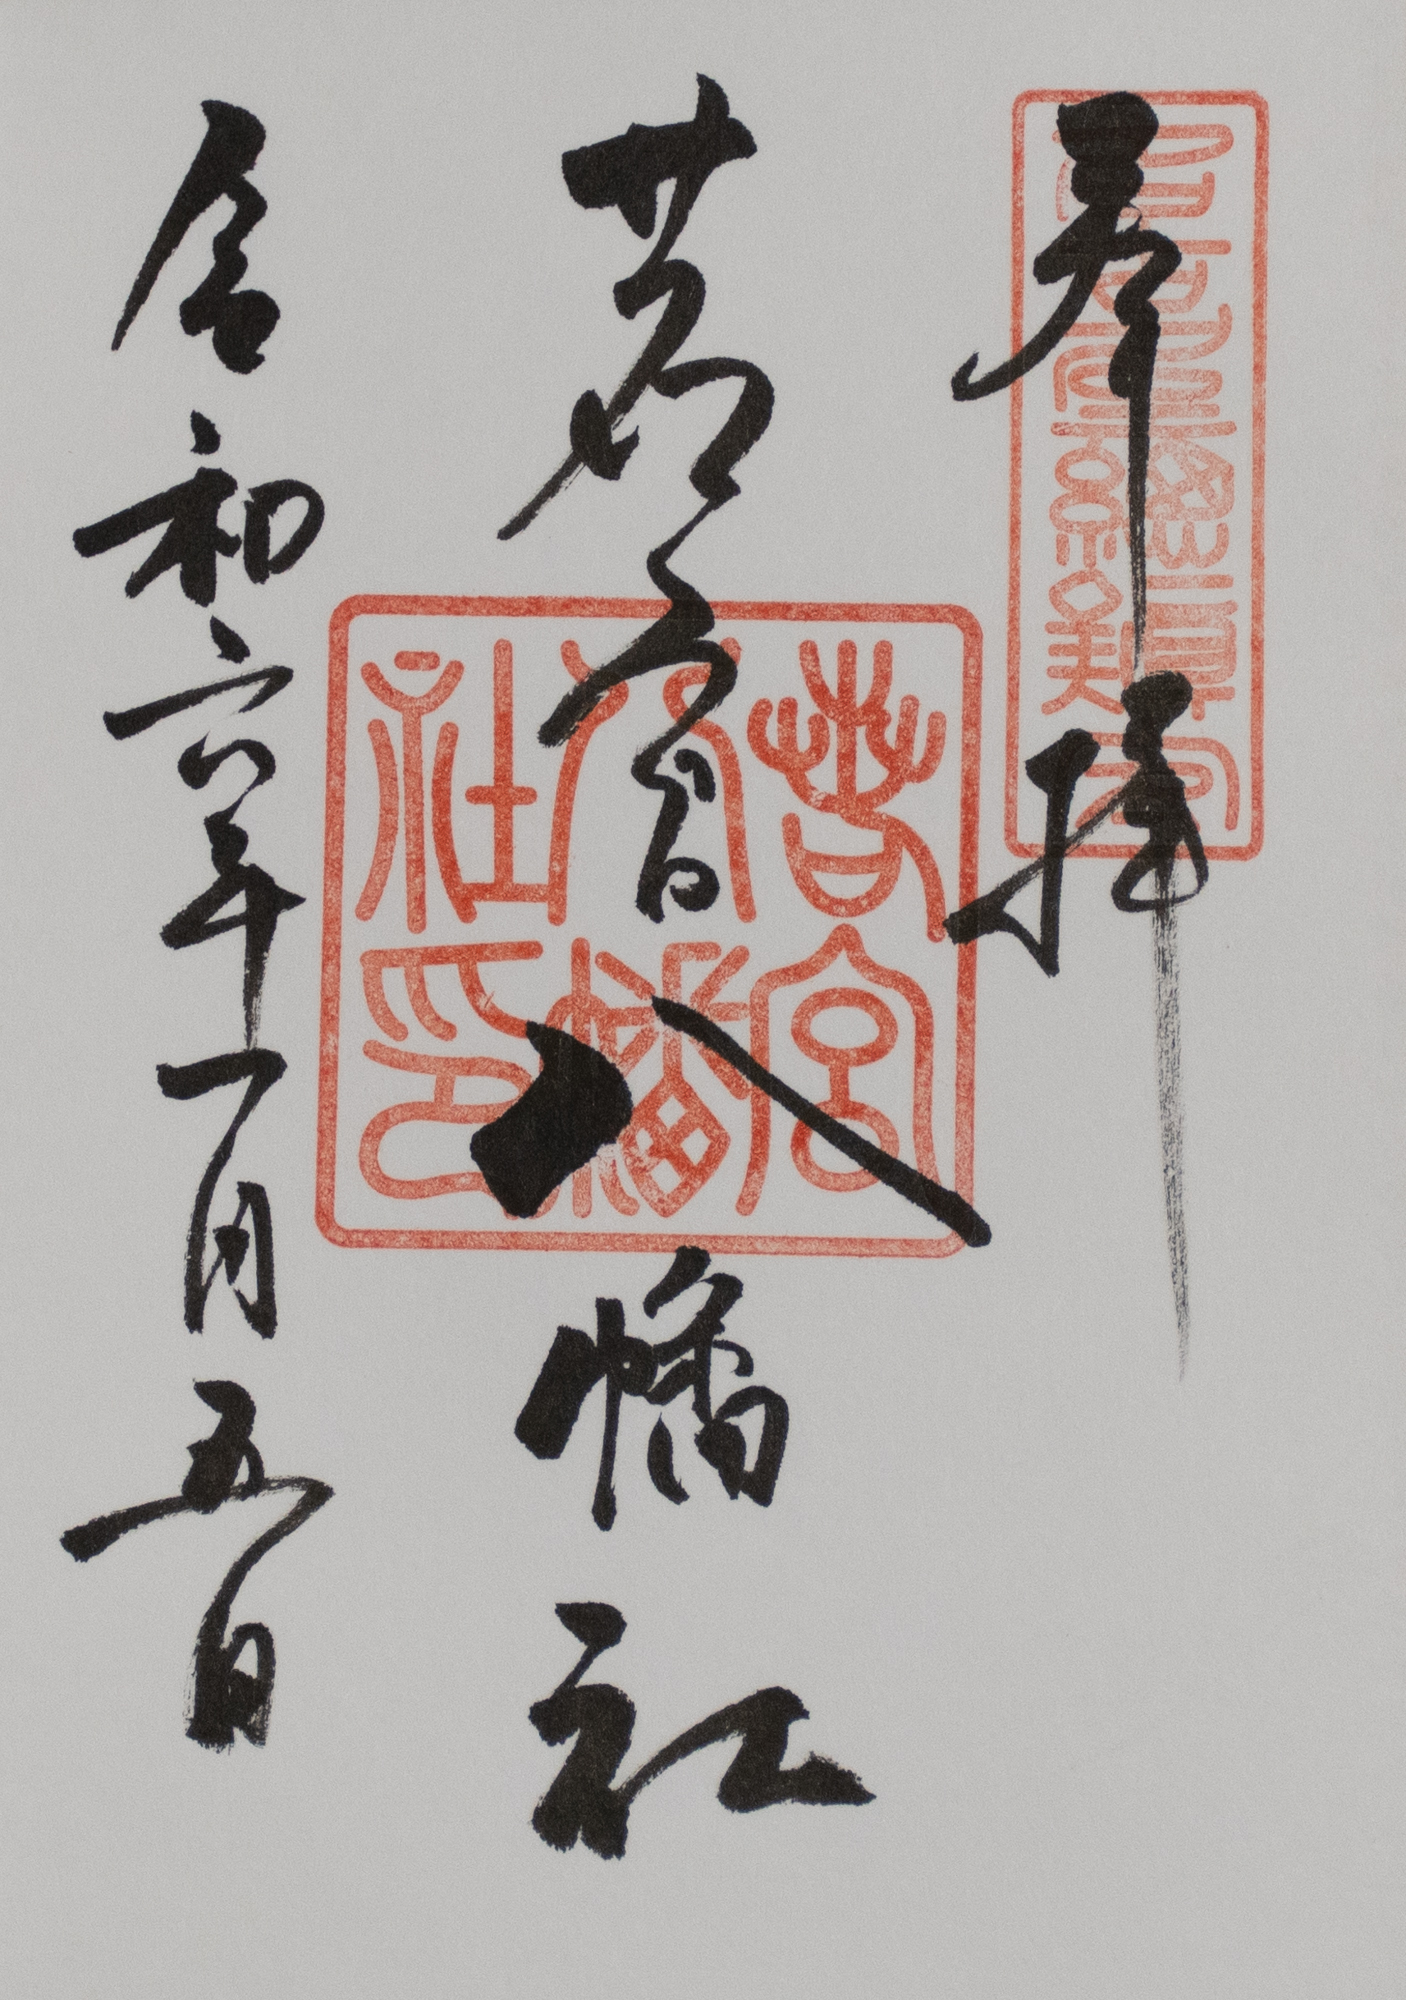 奉拝
若宮八幡社
若宮八幡社印
令和六年一月五日